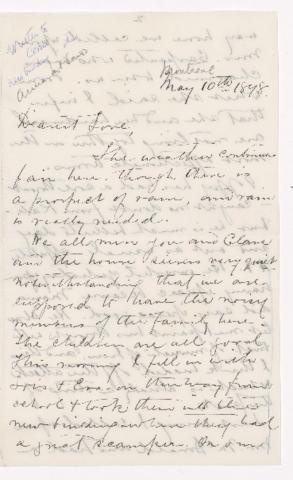 Montreal
May 10th 1898.
Dearest Love,
The weather continues
fair here. though there is
a prospect of rain, and rain
is really needed.
We all miss you and Clare
and the house seems very quiet
notwithstanding that we are
supposed to have the noisy
members of the family here.
The children are all good.
This morning I fell in with
& Eva on their way from
school & took them into the
new building where they had
a great scamper. On our